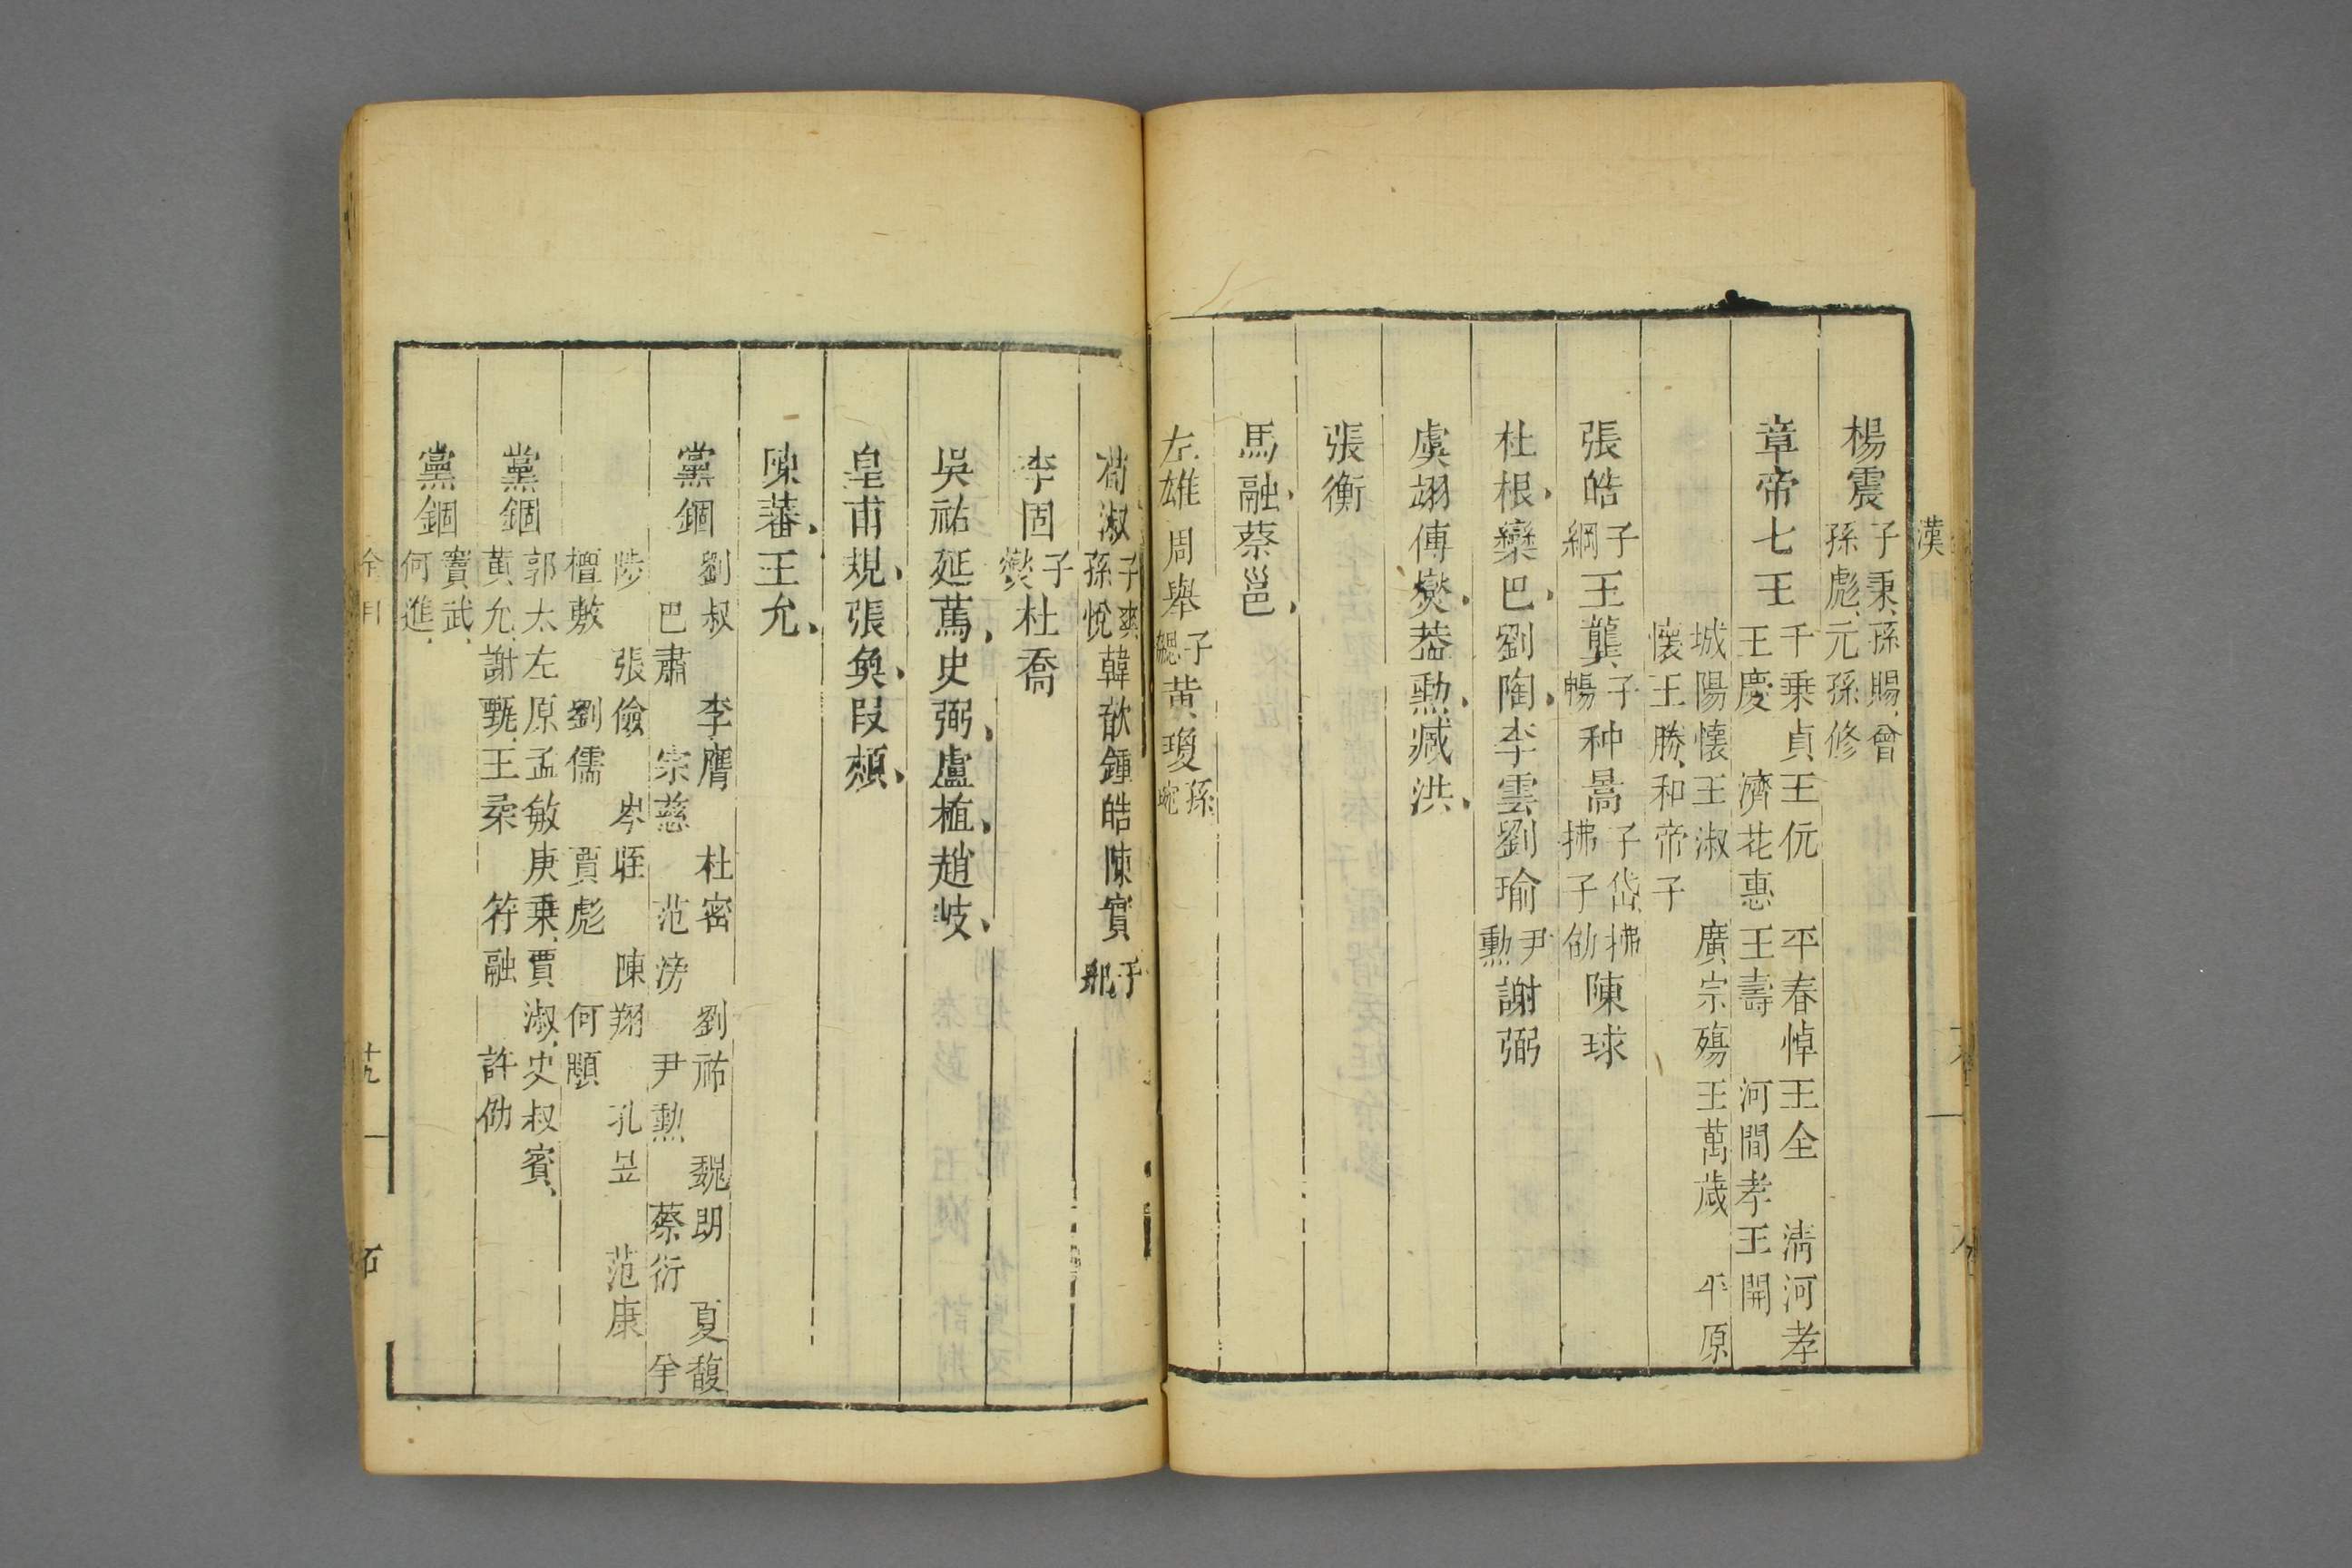 漢
楊震子秉孫賜曾
孫彪元孫修
章帝七王千乗貞王伉 平春悼王全 清河孝
王慶 濟花惠王壽 河間孝王開
城陽懷王淑 廣宗殤王萬歲 平原
懷王勝和帝子
張皓子綱王龔子暢种暠子岱拂子拂子劭陳球
杜根欒巴劉陶李雲劉瑜尹勲謝弼
虞翊傅爕葢勲臧洪
張衡
馬融蔡邕
左雄周舉子勰黃瓊孫琬
荀淑子爽孫悅韓歆鍾皓陳實子
李固子爕杜喬
吳祐延篤史弼盧植趙岐
皇甫規張奐段熲
陳蕃王允
黨錮劉叔 李膺 杜密 劉祐 魏朗 夏馥
巴肅 宗慈 范滂 尹勲 蔡衍 羊
陟 張儉 岑晊 陳翔 孔昱 范康
檀敷 劉儒 賈彪 何顒
黨錮郭太左原孟敏庚乗賈淑史叔賓
黄允謝甄王柔 符融 許劭
黨錮竇武
何進